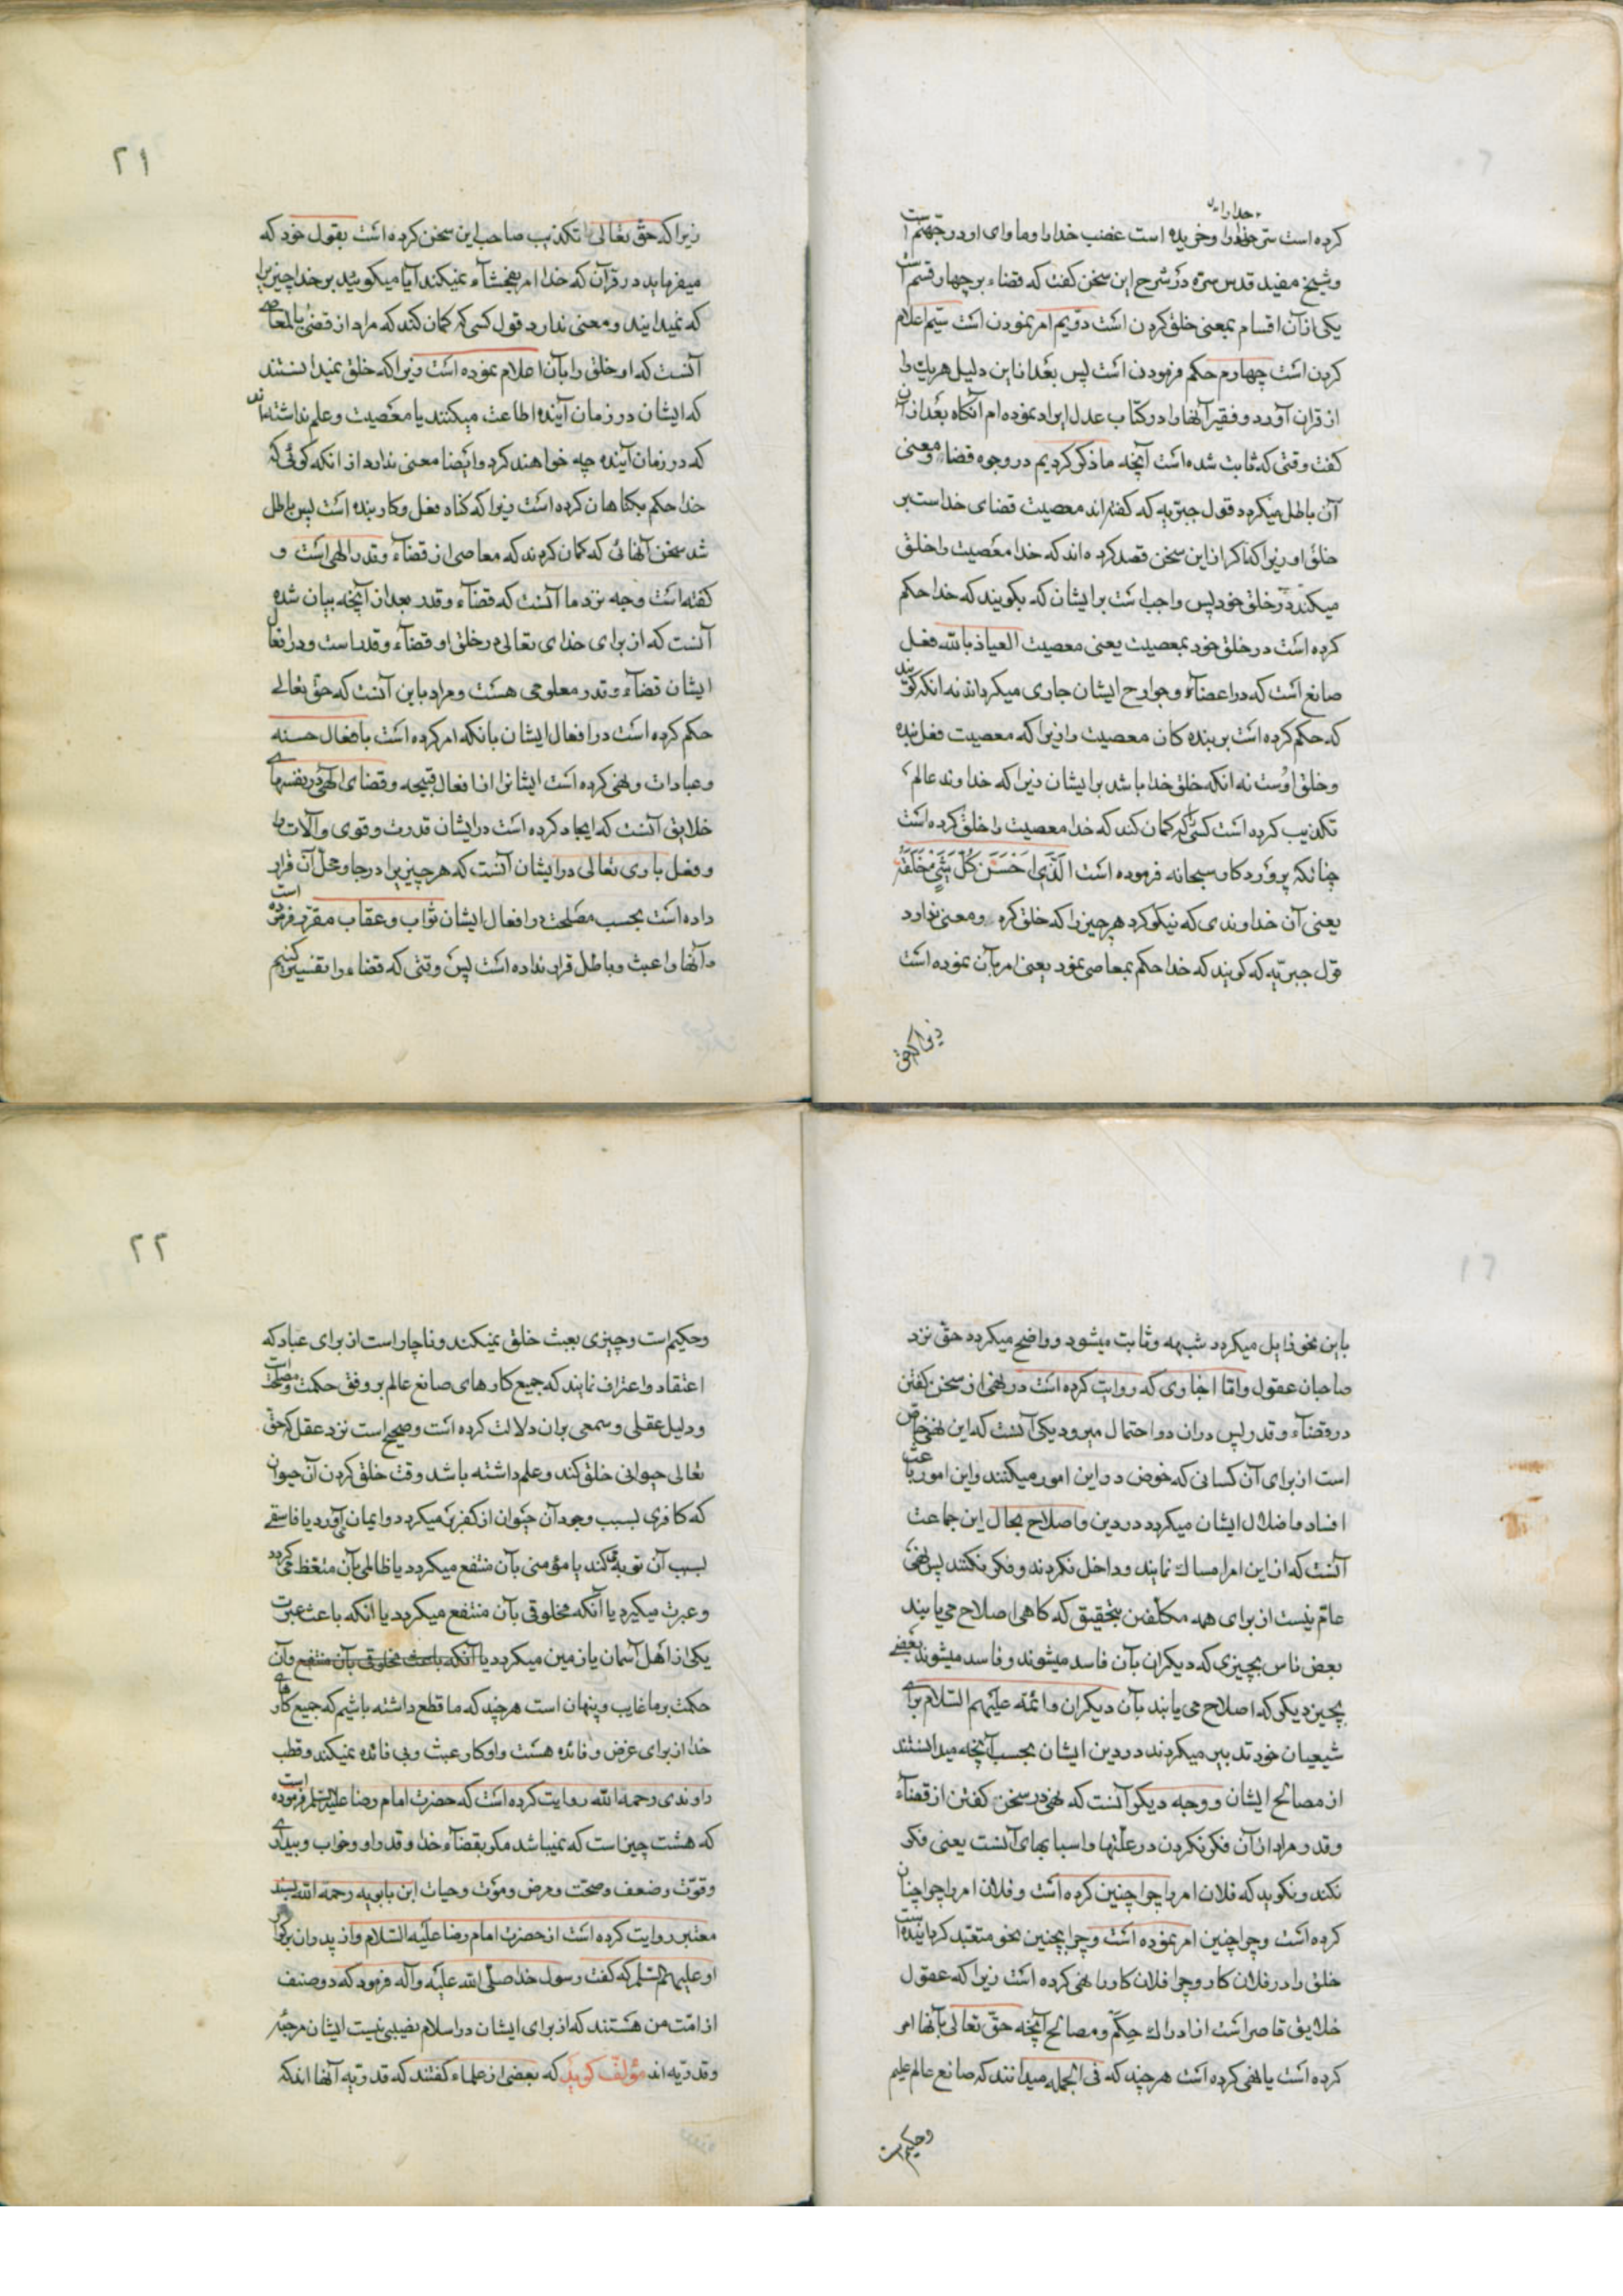 کرده است ستر خدا را و خریده است غضب خدا را و ماوای او در جهنم است
و شیخ مفید قدس سره در شرح این سخن گفت که قضاء بر چهار قسم است
یکی از آن اقسام بمعنی خلق کردن است دویم امر نمودن است سیم اعلام
کردن است چهارم حکم فرمودن است پس بعد از این دلیل هر یک را
از قران آورد و فقیر آنها را در کتاب عدل ایراد نموده ام آنکاه بعد از آن
گفت وقتی که ثابت شده است آنچه ما ذکر کردیم در وجوه قضاء و معنی
آن باطل میگردد قول جبریه که گفته اند معصیت قضای خداست بر
خلق او زیرا که اگر از این سخن قصد کرده اند که خدا معصیت را خلق
میکند در خلق خود پس واجب است بر ایشان که بگویند که خدا حکم
کرده است در خلق خود بمعصیت یعنی معصیت العیاذ بالله فعل
صانع است که در اعضآء و جوارح ایشان جاری میگرداند نه انکه گویند
که حکم کرده است بر بنده کان معصیت را زیرا که معصیت فعل بنده
و خلق اوست نه انکه خلق خدا باشد بر ایشان زیرا که خداوند عالم
تکذیب کرده است کسی را که گمان کند که خدا معصیت را خلق کرده است
چنانکه پرورد کار سبحانه فرموده است الَّذی اَحْسَنَ کُلَّ شَیْءٍ خَلَقَهُ
یعنی آن خداوندی که نیکو کرد هر چیز را که خلق کرد و معنی ندارد
قول جبریه که گویند که خدا حکم بمعاصی نمود یعنی امر بآن نموده است
زیرا که حق
۲۱
زیرا که حق تعالی تکذیب صاحب این سخن کرده است بقول خود که
میفرماید در قرآن که خدا امر بفحشآء نمیکند آیا میگوئید بر خدا چیزیرا
که نمیدانید و معنی ندارد قول کسی که گمان کند که مراد از قضی بالمعاصی
آنست که او خلق را بآن اعلام نموده است زیرا که خلق نمیدانستند
که ایشان در زمان آینده اطاعت میکنند یا معصیت و علم نداشته اند
که در زمان آینده چه خواهند کرد و ایضا معنی ندارد از انکه گوئی که
خدا حکم بگناهان کرده است زیرا که گناه فعل و کار بنده است پس باطل
شد سخن آنهائی که گمان کردند که معاصی از قضآء و قدر الهی است و
گفته است وجه نزد ما آنست که قضآء و قدر بعد از آنچه بیان شده
آنست که از برای خدای تعالی در خلق او قضآء و قدر است و در افعال
ایشان قضآء و قدر معلومی هست و مراد باین آنست که حق تعالی
حکم کرده است در افعال ایشان بانکه امر کرده است بافعال حسنه
و عبادات و نهی کرده است ایشانرا از افعال قبیحه و قضای الهی در نفسهای
خلایق آنست که ایجاد کرده است در ایشان قدرت و قوی و آلات را
و فعل باری تعالی در ایشان آنست که هر چیزیرا در جا و محل آن قرار
داده است بحسب مصلحت در افعال ایشان ثواب و عقاب مقرر فرموده است
و آنها را عبث و باطل قرار نداده است پس وقتی که قضاء را تفسیر کنیم
باین نحو زایل میگردد شبهه و ثابت میشود و واضح میگردد حق نزد
صاحبان عقول و اما اخباری که روایت کرده است در نهی از سخن گفتن
در قضآء و قدر پس در ان دو احتمال میرود یکی آنست که این نهی خاص
است از برای آن کسانی که خوض در این امور میکنند و این امور باعث
افساد و اضلال ایشان میگردد در دین و اصلاح بحال این جماعت
آنست که از این امر امساک نمایند و داخل نگردند و فکر نکنند پس نهی
عام نیست از برای همه مکلفین بتحقیق که گاهی اصلاح می یابند
بعض ناس بچیزی که دیگران بآن فاسد میشوند و فاسد میشوند بعضی
بچیز دیگر که اصلاح می یابند بآن دیگران و ائمه علیهم السلام برای
شیعیان خود تدبیر میکردند در دین ایشان بحسب آنچه میدانستند
از مصالح ایشان و وجه دیگر آنست که نهی در سخن گفتن از قضآء
و قدر و مراد از آن فکر نکردن در علتها و اسبابهای آنست یعنی فکر
نکند و نگوید که فلان امر را چرا چنین کرده است و فلان امر را چرا چنان
کرده است و چرا چنین امر نموده است و چرا بچنین نحو متعبد گردانیده است
خلق را در فلان کار و چرا فلان کار را نهی کرده است زیرا که عقول
خلایق قاصر است از ادراک حِکَم و مصالح آنچه حق تعالی بآنها امر
کرده است یا نهی کرده است هر چند که فی الجمله میدانند که صانع عالم علیم
و حکیم است
۲۲
و حکیم است و چیزی بعبث خلق نمیکند و ناچار است از برای عباد که
اعتقاد و اعتراف نمایند که جمیع کارهای صانع عالم بر وفق حکمت و مصلحت است
و دلیل عقلی و سمعی بران دلالت کرده است و صحیح است نزد عقل که حق
تعالی حیوانی خلق کند و علم داشته باشد وقت خلق کردن آن حیوان
که کافری بسبب وجود آن حیوان از کفر بر میگردد و ایمان می آورد یا فاسقی
بسبب آن توبه میکند یا مؤمنی بآن منتفع میگردد یا ظالمی بآن متعظ می گردد
و عبرت میگیرد یا آنکه مخلوقی بآن منتفع میگردد یا انکه باعث عبرت
یکی از اهل آسمان یا زمین میگردد یا آنکه باعث مخلوقی بآن منتفع و آن
حکمت بر ما غایب و پنهان است هر چند که ما قطع داشته باشیم که جمیع کارهای
خدا از برای غرض و فائده هست و او کار عبث و بی فائده نمیکند و قطب
راوندی رحمه الله روایت کرده است که حضرت امام رضا علیه السلم فرموده است
که هشت چیز است که نمیباشد مگر بقضآء خدا و قدر او و خواب و بیداری
و قوت و ضعف و صحت و مرض و موت و حیات ابن بابویه رحمه الله بسند
معتبر روایت کرده است از حضرت امام رضا علیه السلام و از پدران بزرگوار
او علیهم السلم که گفت رسول خدا صلی الله علیه وآله فرمود که دو صنف
از امت من هستند که از برای ایشان در اسلام نصیبی نیست ایشان مرجئه
و قدریه اند مؤلف گوید که بعضی از علماء گفتند که قدریه آنها اند که